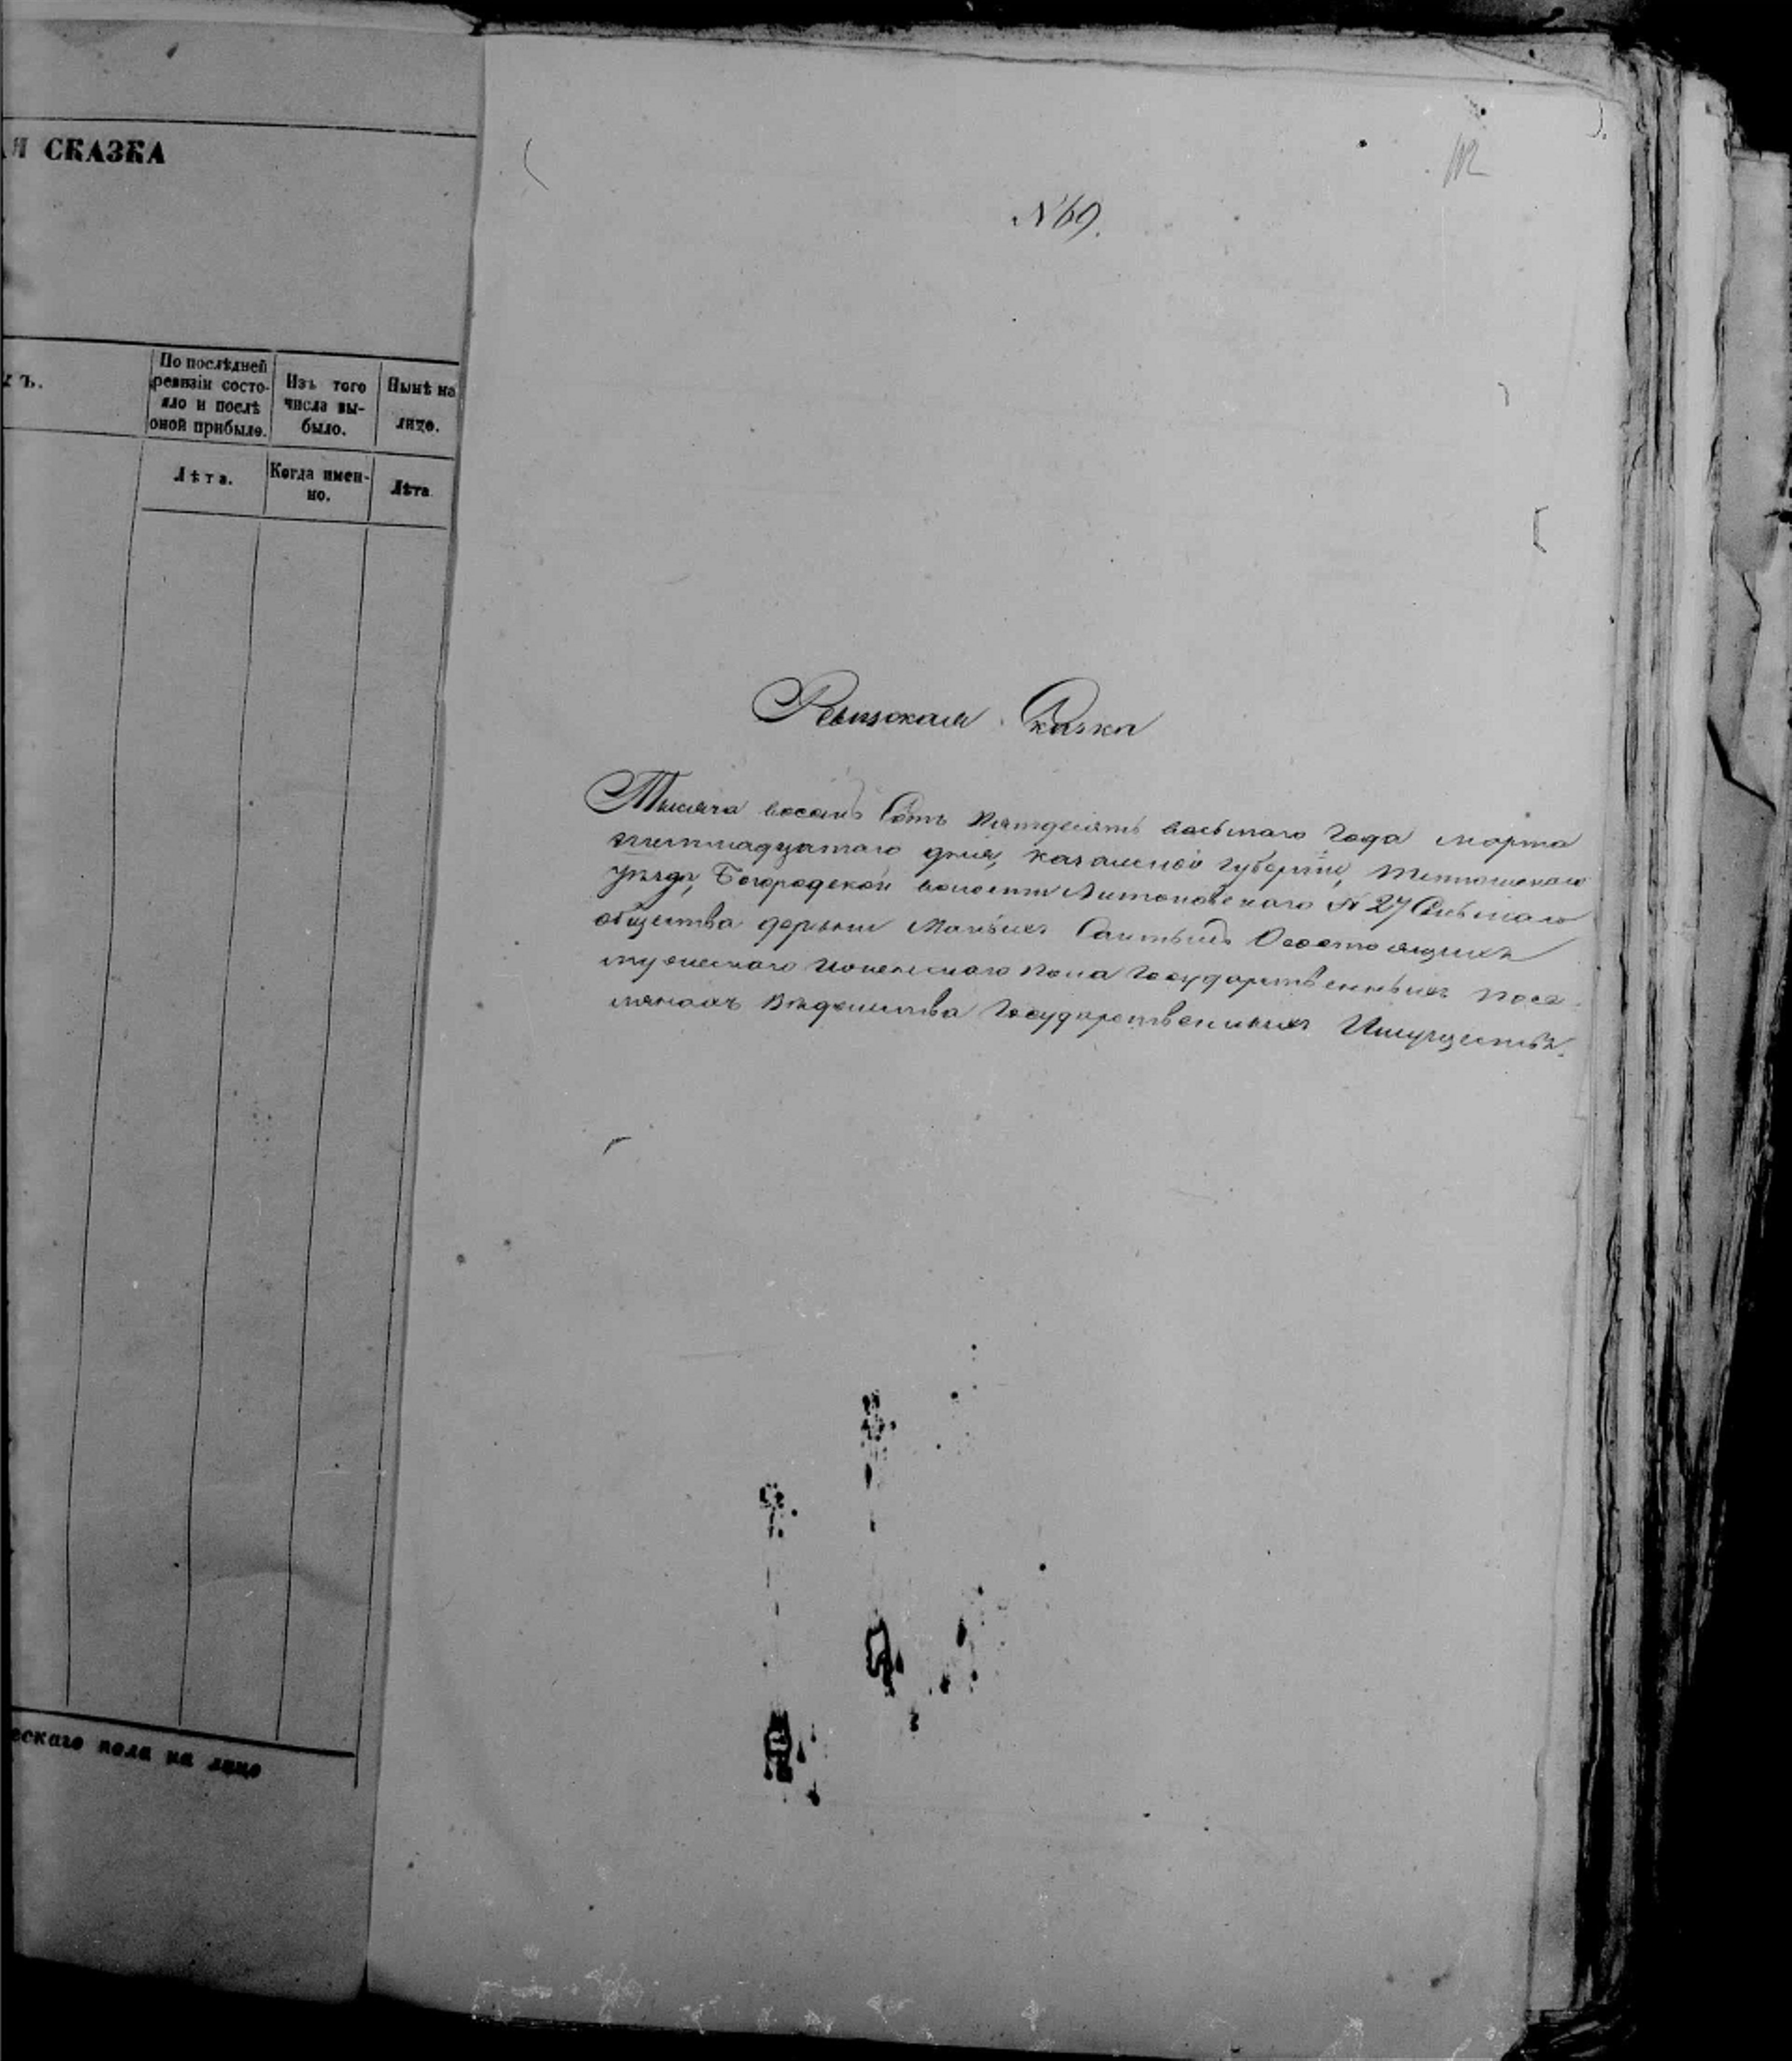 Я СКАЗКА
ХЪ.
По послѣдней
ревизіи состо-
яло и послѣ
оной прибыло.
Изъ того
числа вы-
было.
Нынѣ на
лицо.
Лѣта.
Когда имен-
но.
Лѣта
ескаго пола на лицо
112
№ 69.
Ревизская Сказка
Тысяча восемь Сотъ Пятдесятъ восьмаго Года марта
дня, Казанской Губерніи, Тетюшскаго
уѣзда, Богородской волости № 27 Сельскаго
общества деревни Малыхъ О состоящихъ
мужескаго и женскаго пола Государственныхъ посе-
лянахъ Вѣдомства Государственныхъ Имуществъ.